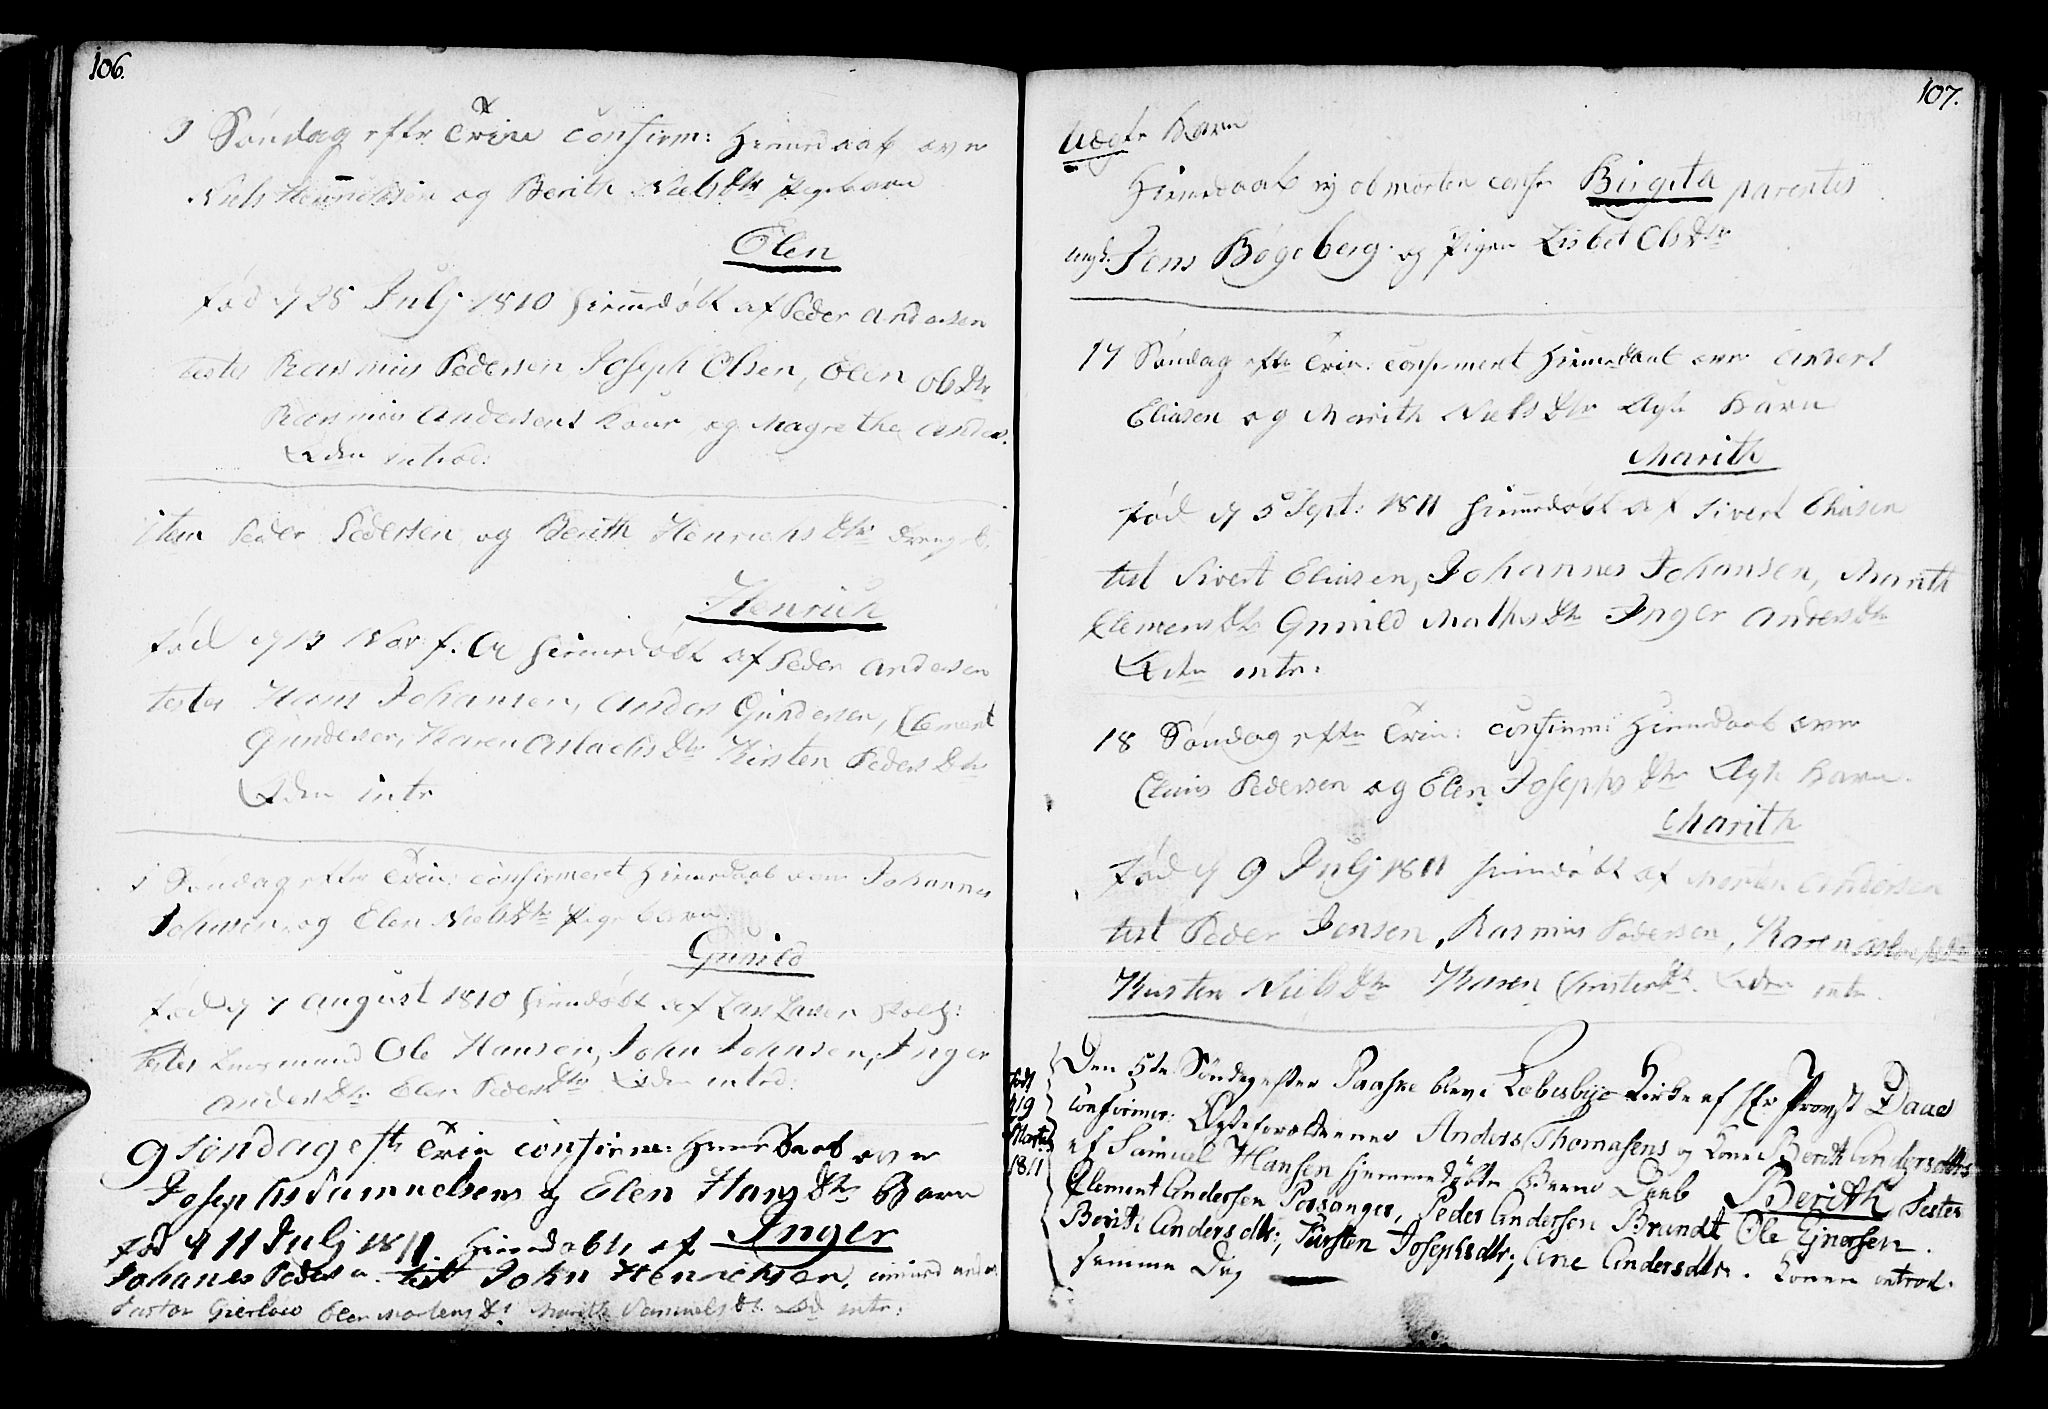 106.
Søndag eftr Trin confirm: Hiemedaab over
Niels Hennrichsen og Berith Niels Dtr Pigebarn
Elen
fød d 28 Julj 1810 hiemedøbt af Peder Andersen
testes Rasmus Pedersen Joseph Olsen, Elen Ols Dtr
Rasmus Andersens Kone og Magrethe Anders.
introd:
item Peder Pedersen og Berith Henrichs Dtr Drengeb.
Henrich
fød d 13 Nov: f. A hiemedøbt af Peder Andersen
testes Hans Johansen, Anders Gundersen, Clement
Gundersen, Karen Aslachs Dtr Kirsten Peders Dtr
intr
Søndag eftr Trin: confirmeret Hiemedaab over Johannes
Johnsen og Elen Niels Dtr Pige barn
Gunild
fød d 7 August 1810 hiemdøbt af Lars Larsen
testes Ole Hansen, John Johnsen, Inger
Anders Dtr Elen Peders Dtr introd.
9 Søndag eft Trin confirm: Hiemedaab over
Josephs Samuelsens og Elen Hans Dtr Barn
fød d 11 Julj 1811. Hiemdøbt af Inger
Johanes Peders n. test John Henrichsen,
Pastor Gierløw Elen Mortens Dt Marith Samuels Dt. intr:
107.
Uægte Barn
Hiemedaab ej ob mortem confir Birgitha parentes
angb: Jens Bøgeberg og Pigen Lisbet Ols Dtr
17 Søndag eftr Trin: confirmeret Hiemedaab over Anders
Eliasen og Marith Niels Dtr Ægte Barn
Marith
fød d 5 Sept: 1811 hiemedøbt af Sivert Eliasen
test Sivert Eliasen, Johannes Johansen, Marith
Clemens Dtr Gunild Mathis Dtr Inger Anders Dtr
intr:
18 Søndag eftr Trin: confirm: Hiemedaab over
Claus Pedersen og Elen Josephs Dtr Ægte Barn.
Marith
fød d 9 Julj 1811 hiemdøbt af Morten Andersen
test Peder Jensen, Rasmus Pedersen, Karen
Kirsten Niels Dtr Karen intr.
født
d 19
Martii
1811
Den 5te Søndag efter Paaske blev i Lebesbye Kirke af Hr Provst Daae
confirmer: Ægteforældrenes Anders Thomasens og Kone Berith Andersdtrs
af Samuel Hansen hjemmedøbte Barns Daab Berith Testes
Clement Andersen Porsanger, Peder Andersen Brandt Ole Ejnersen.
Berith Andersdtr, Kirsten Josephsdtr; Ane Andersdtr. Konen introd:
samme Dag